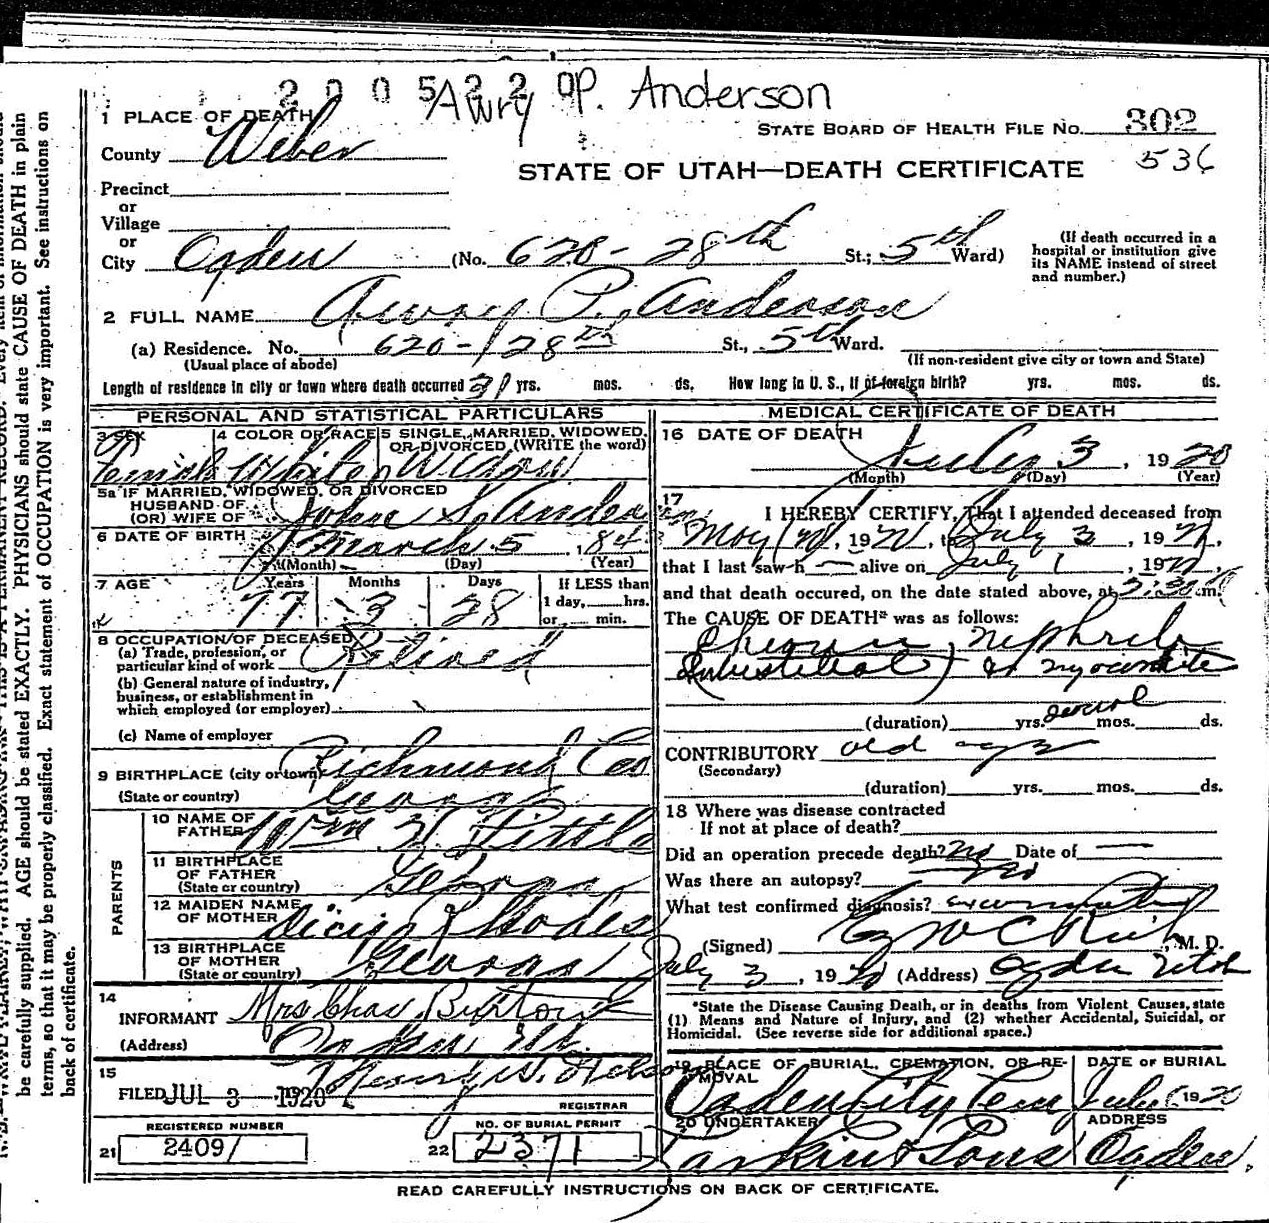 2005220
Awry P. Anderson
1 PLACE OF DEATH
STATE BOARD OF HEALTH FILE No. 302
County Weber
536
STATE OF UTAH—DEATH CERTIFICATE
Precinct
or
Village
or
City Ogden (No. 620 - 28th St.; 5th Ward)
(If death occurred in a hospital or institution give its NAME instead of street and number.)
2 FULL NAME Awry P. Anderson
(a) Residence. No. 620 - 28th St., 5th Ward.
(Usual place of abode)
(If non-resident give city or town and State)
Length of residence in city or town where death occurred 31 yrs. mos. ds. How long in U. S., if of foreign birth? yrs. mos. ds.
PERSONAL AND STATISTICAL PARTICULARS
3 SEX
Female
4 COLOR OR RACE
White
5 SINGLE, MARRIED, WIDOWED, OR DIVORCED (WRITE the word)
Widow
5a IF MARRIED, WIDOWED, OR DIVORCED
HUSBAND OF
(OR) WIFE OF John S. Anderson
6 DATE OF BIRTH March 5, 1843
(Month) (Day) (Year)
7 AGE
Years Months Days
77 3 28
If LESS than
1 day, hrs.
or min.
8 OCCUPATION OF DECEASED
(a) Trade, profession, or
particular kind of work Retired
(b) General nature of industry,
business, or establishment in
which employed (or employer)
(c) Name of employer
9 BIRTHPLACE (city or town) Richmond Co
(State or country) Georgia
PARENTS
10 NAME OF
FATHER Wm H. Pittle
11 BIRTHPLACE
OF FATHER
(State or country) Georgia
12 MAIDEN NAME
OF MOTHER Rhodes
13 BIRTHPLACE
OF MOTHER
(State or country) Georgia
14
INFORMANT Mrs Chas Burton
(Address) Ogden Ut.
15
FILED JUL 3 1920 Henry W. Nelson
REGISTRAR
REGISTERED NUMBER
21 2409
NO. OF BURIAL PERMIT
22 2371
MEDICAL CERTIFICATE OF DEATH
16 DATE OF DEATH
July 3, 1920
(Month) (Day) (Year)
17
I HEREBY CERTIFY, That I attended deceased from
May 1920, to July 3, 1920,
that I last saw h alive on July 1, 1920,
and that death occured, on the date stated above, at 2:30 m.
The CAUSE OF DEATH* was as follows:
Chronic Nephritis
(Interstitial) & myocarditis
(duration) yrs. several mos. ds.
CONTRIBUTORY old age
(Secondary)
(duration) yrs. mos. ds.
18 Where was disease contracted
If not at place of death?
Did an operation precede death? No Date of —
Was there an autopsy? No
What test confirmed diagnosis? examination
(Signed) M. D.
July 3, 1920 (Address) Ogden Utah
*State the Disease Causing Death, or in deaths from Violent Causes, state
(1) Means and Nature of Injury, and (2) whether Accidental, Suicidal, or
Homicidal. (See reverse side for additional space.)
19 PLACE OF BURIAL, CREMATION, OR REMOVAL
Ogden City Cem
DATE OF BURIAL
July 1920
20 UNDERTAKER
Larkin & Sons
ADDRESS
Ogden.
READ CAREFULLY INSTRUCTIONS ON BACK OF CERTIFICATE.
be carefully supplied. AGE should be stated EXACTLY. PHYSICIANS should state CAUSE OF DEATH in plain
terms, so that it may be properly classified. Exact statement of OCCUPATION is very important. See instructions on
back of certificate.